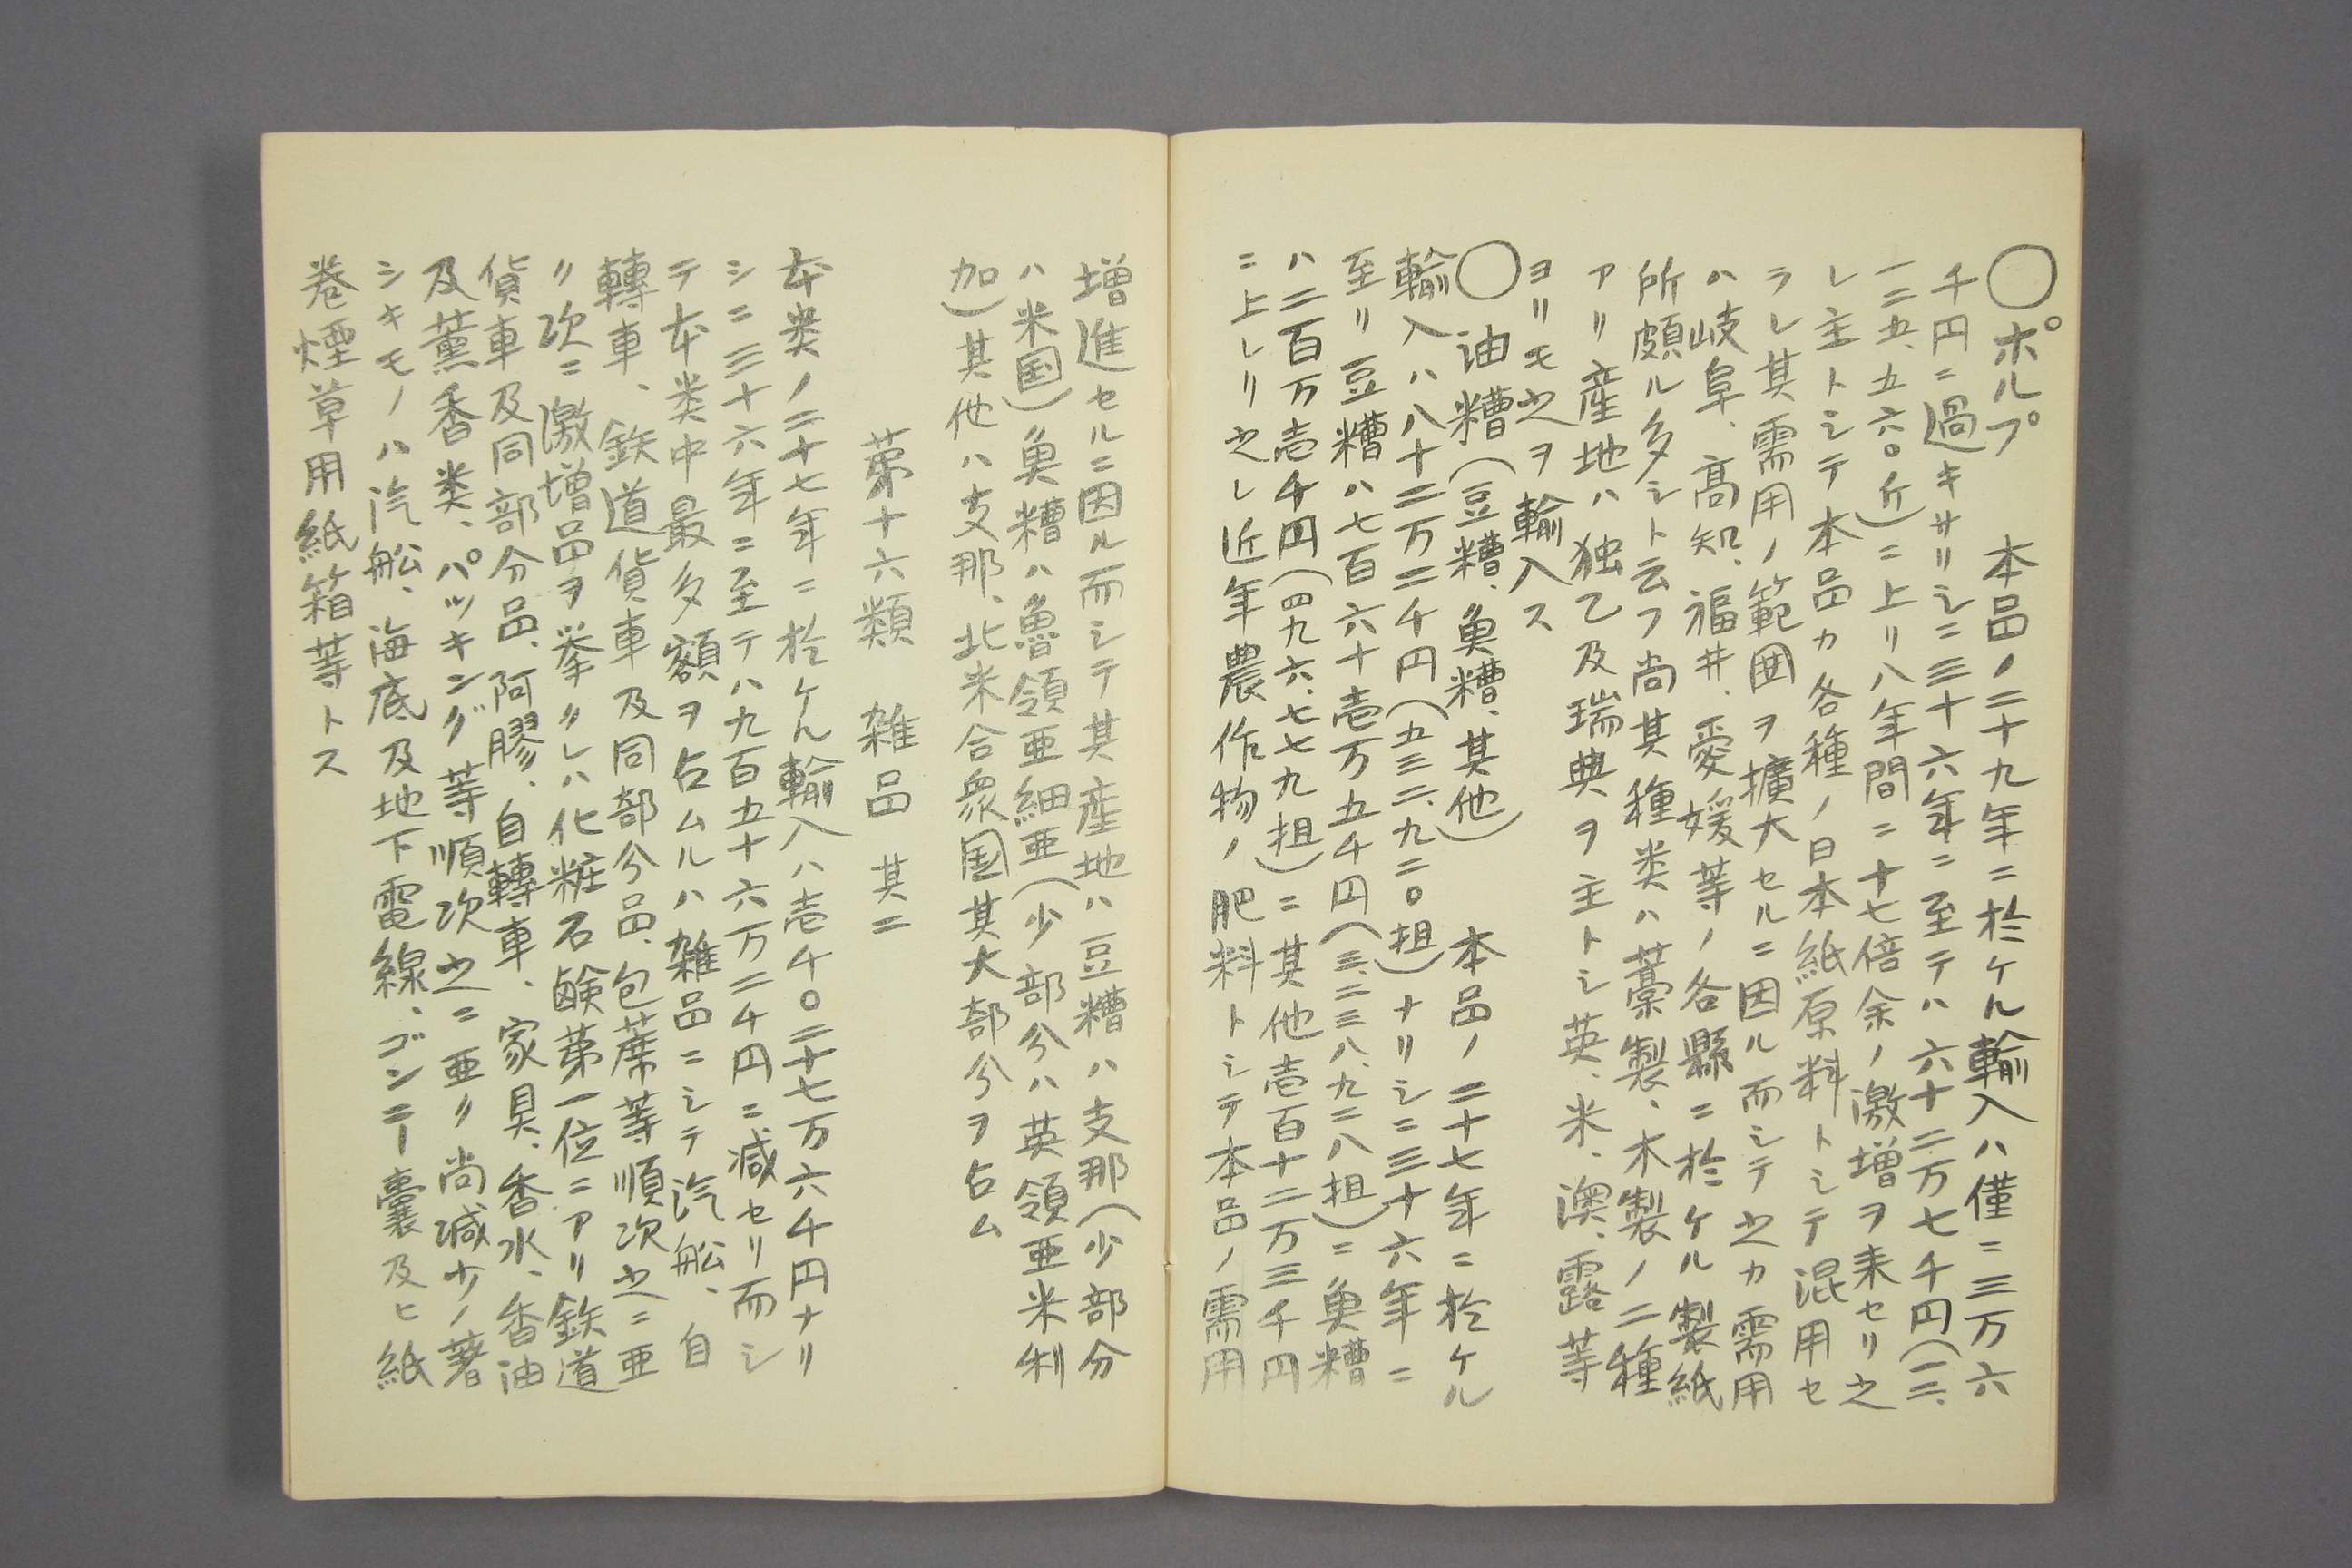 ○ポルプ　本品ノ二十九年ニ於ケル輸入ハ僅ニ三万六
千円ニ過キサリシニ三十六年ニ至テハ六十二万七千円(一三、
一二五、五六〇斤)ニ上リ八年間ニ十七倍余ノ激増ヲ来セリ之
レ主トシテ本品カ各種ノ日本紙原料トシテ混用セ
ラレ其需用ノ範囲ヲ擴大セルニ因ル而シテ之カ需用
ハ岐阜、高知、福井、愛媛等ノ各縣ニ於ケル製紙
所頗ル多シト云フ尚其種类ハ藁製、木製ノ二種
アリ産地ハ独乙及瑞典ヲ主トシ英、米、澳、露等
ヨリモ之ヲ輸入ス
○油糟(豆糟、魚糟、其他)　本品ノ二十七年ニ於ケル
輸入ハ八十二万二千円(五三二、九二〇担)ナリシニ三十六年ニ
至リ豆糟ハ七百六十壱万五千円(三、二三八、九二八担)ニ魚糟
ハ二百万壱千円(四九六、七七九担)ニ其他壱百十二万三千円
ニ上レリ之レ近年農作物ノ肥料トシテ本品ノ需用
増進セルニ因ル而シテ其産地ハ豆糟ハ支那(少部分
ハ米国)魚糟ハ魯領亜細亜(少部分ハ英領亜米利
加)其他ハ支那、北米合衆国其大部分ヲ占ム
第十六類　雑品　其二
本类ノ二十七年ニ於ケル輸入ハ壱千〇二十七万六千円ナリ
シニ三十六年ニ至テハ九百五十六万二千円ニ減セリ而シ
テ本类中最多額ヲ占ムルハ雑品ニシテ汽舩、自
轉車、鉄道貨車及同部分品、包蓆等順次之ニ亜
リ次ニ激増品ヲ挙クレハ化粧石鹸第一位ニアリ鉄道
貨車及同部分品、阿膠、自轉車、家具、香水、香油
及薫香类、パッキング等順次之ニ亜ク尚減少ノ著
シキモノハ汽舩、海底及地下電線、ゴンニー嚢及ヒ紙
巻煙草用紙箱等トス